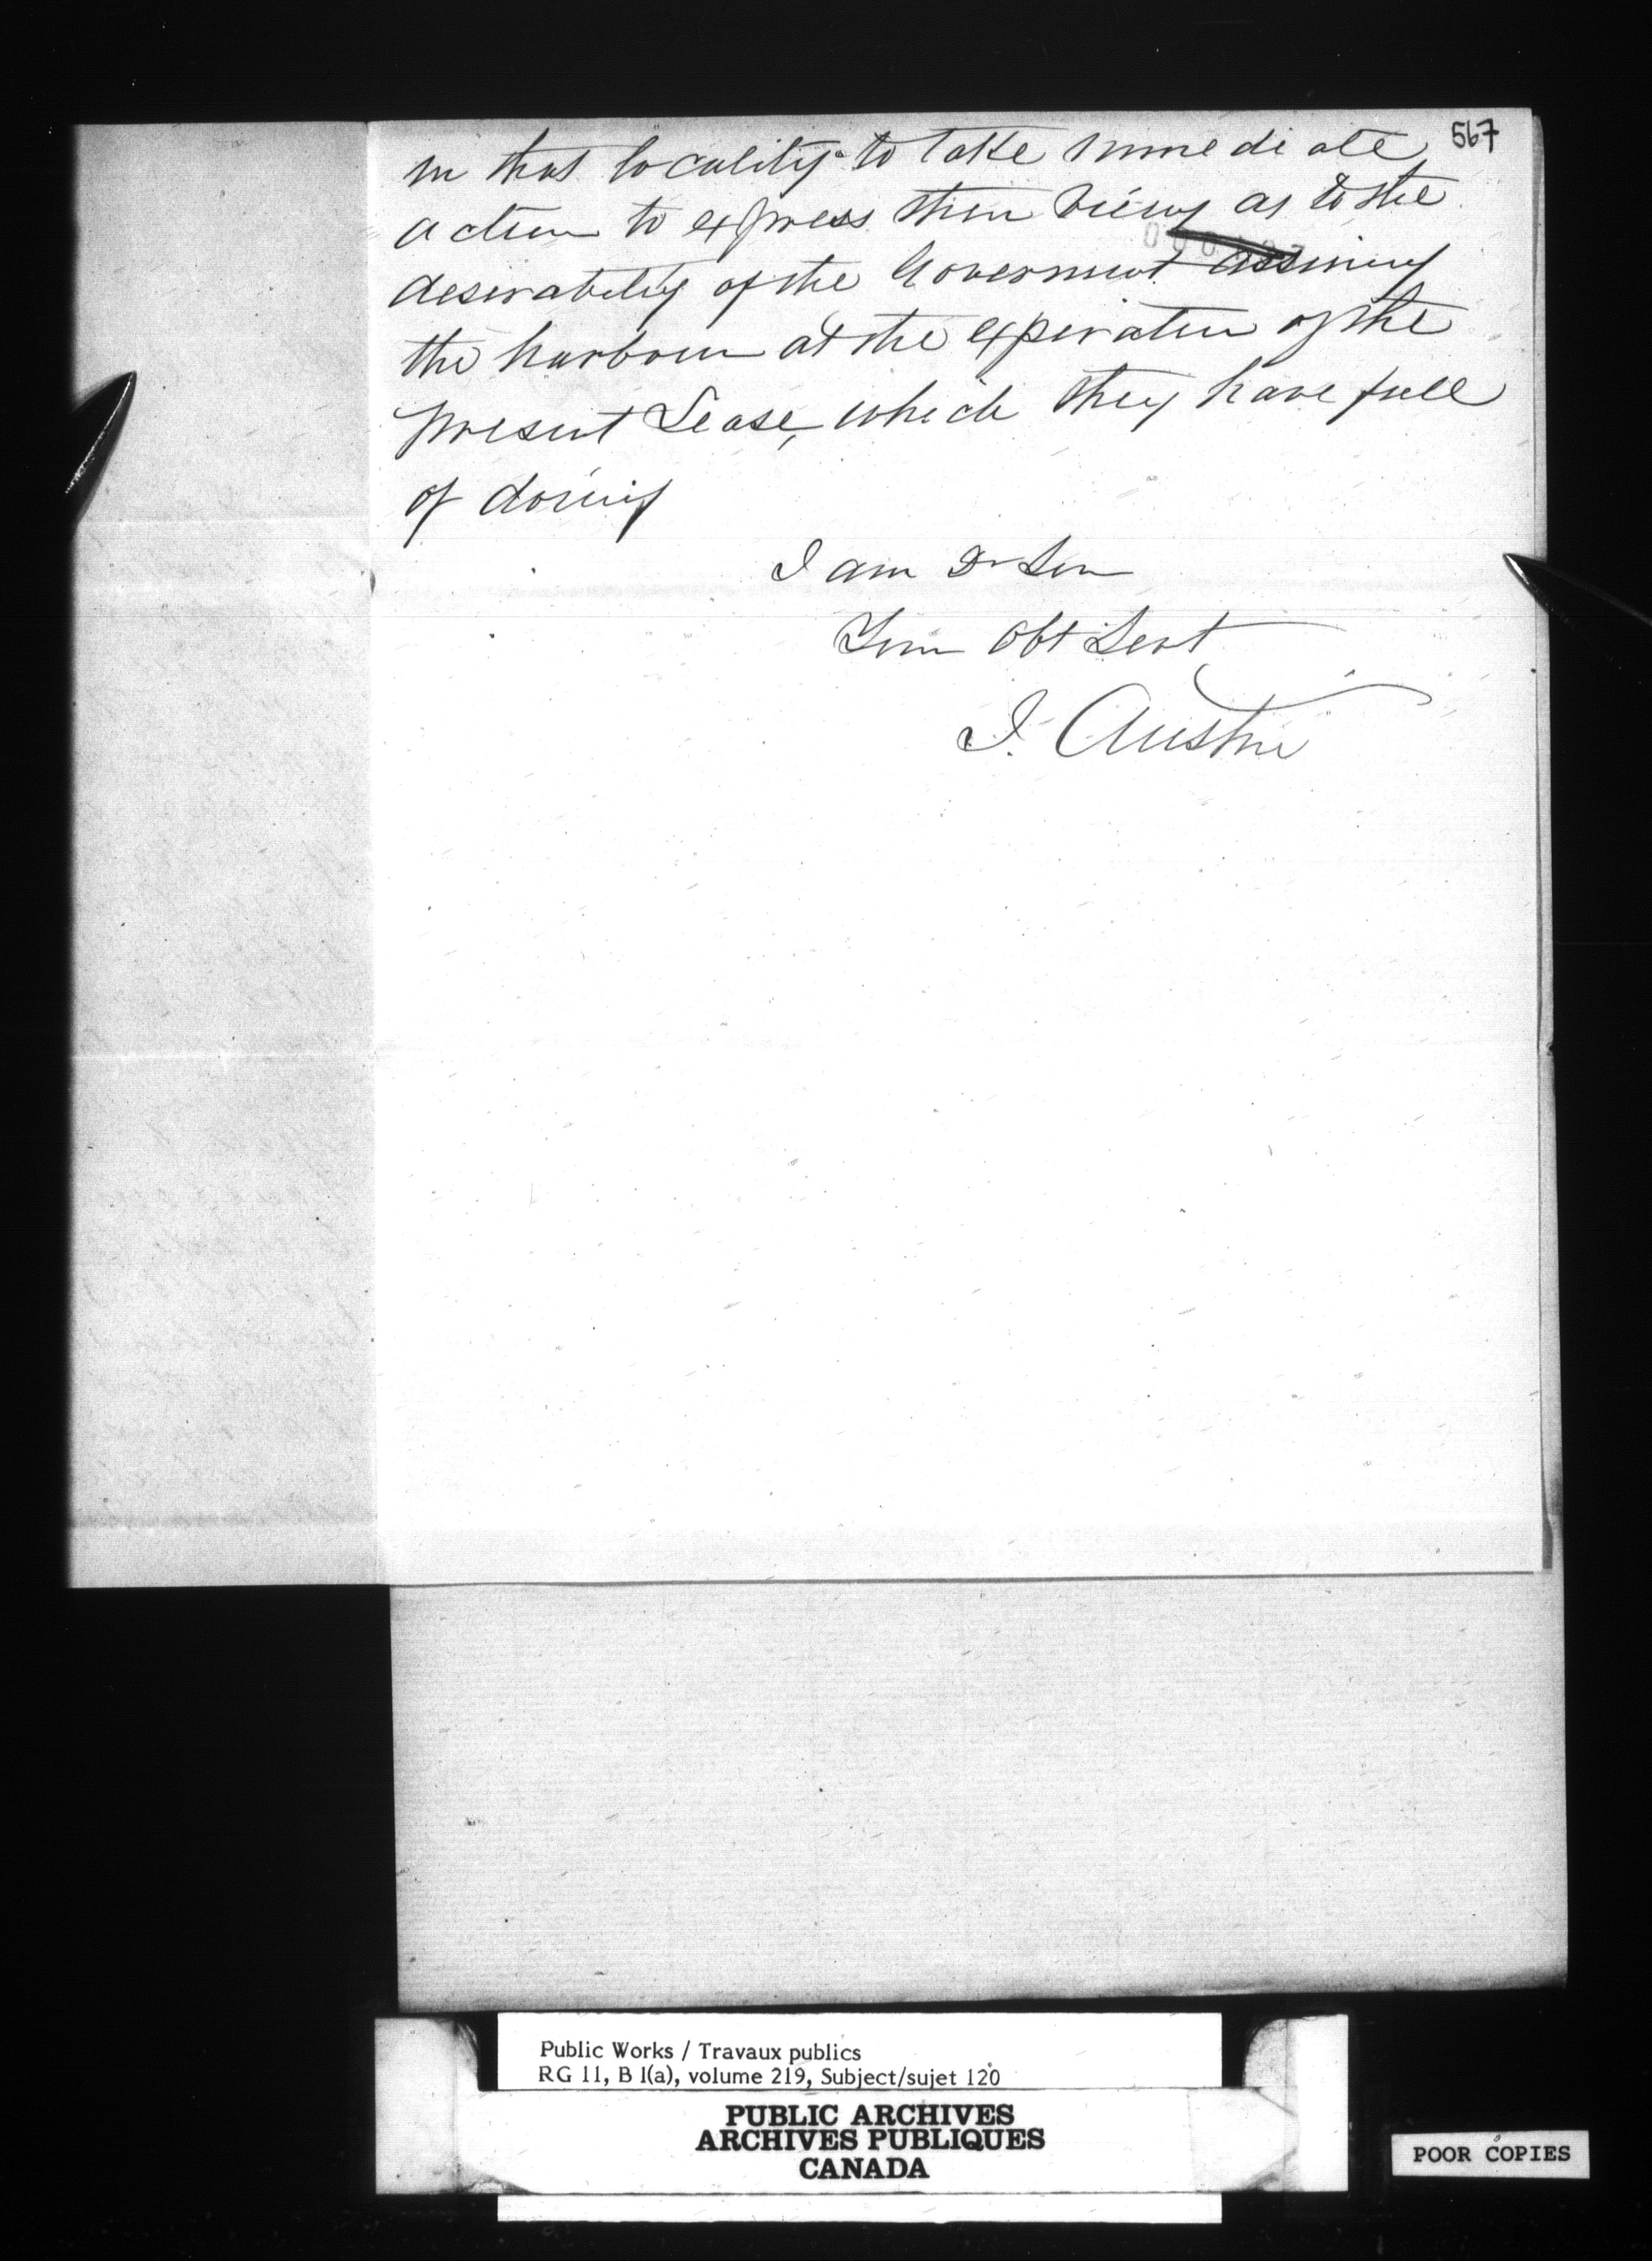 567
in that locality to take immediate
action to express their views as to the
desirability of the Government assuming
the harbour at the expiration of the
present Lease, which they have full
of doing
I am Dr Sir
Your Obt Sert
J. Austin
Public Works / Travaux publics
RG 11, B 1(a), volume 219, Subject/sujet 120
PUBLIC ARCHIVES
ARCHIVES PUBLIQUES
CANADA
POOR COPIES